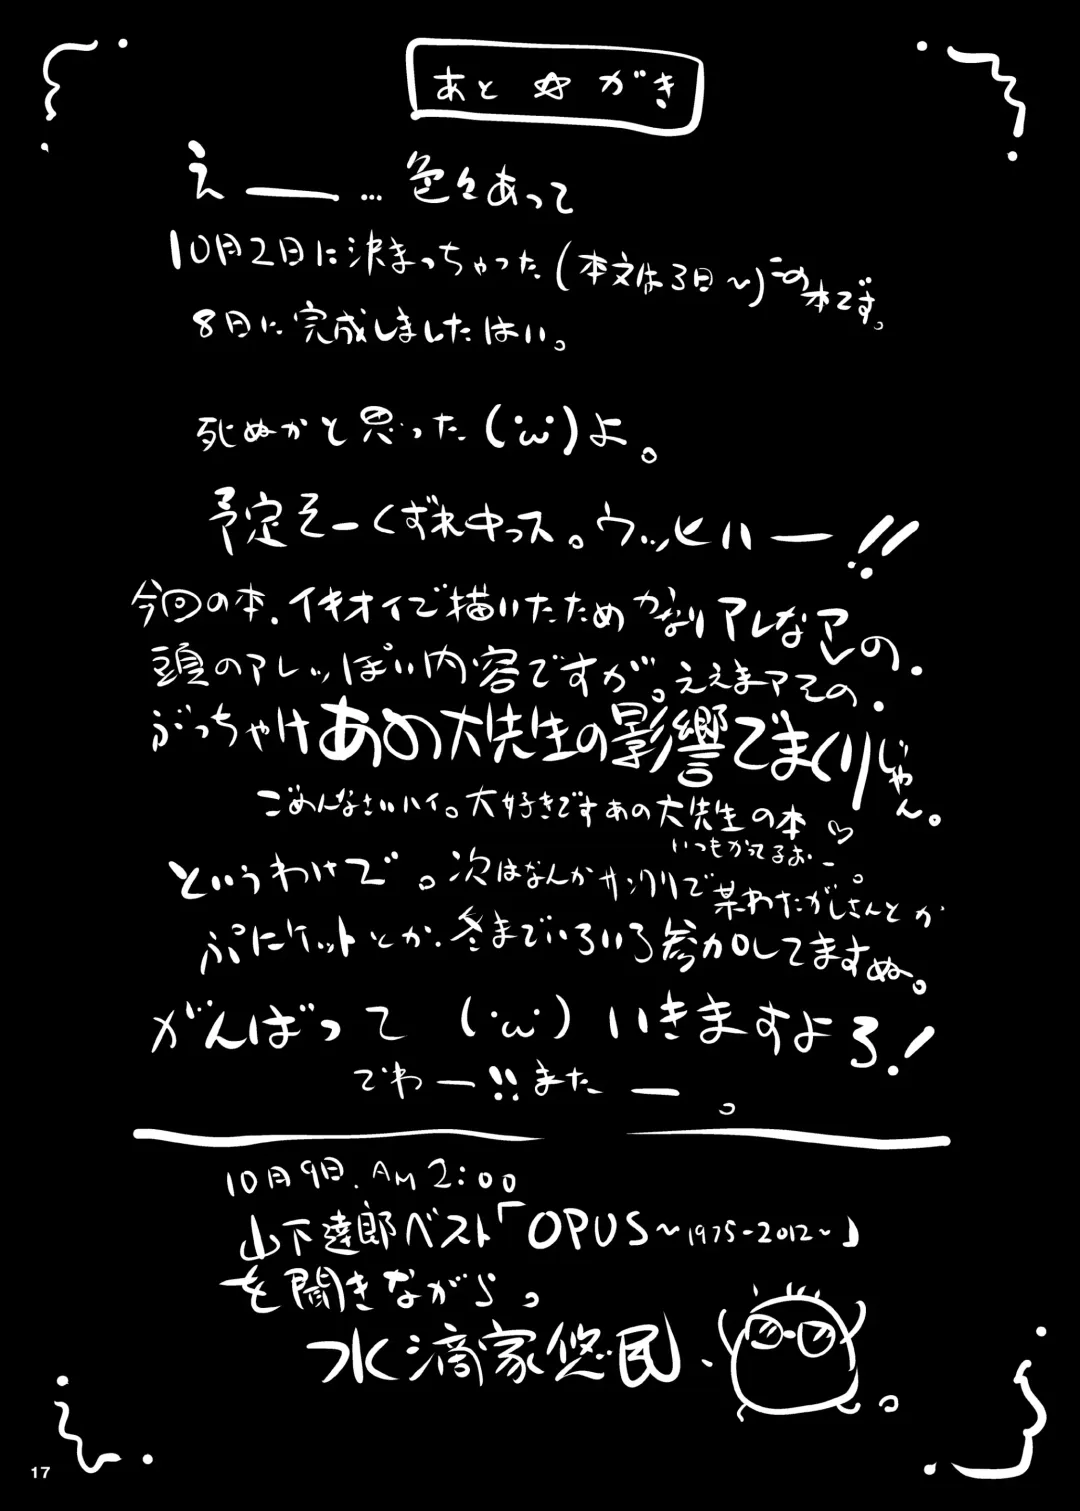 あと☆がき
えー…色々あって
10月2日に決まっちゃった(本文は3日～)この本です。
8日に完成しましたはい。
死ぬかと思った(・ω・)よ。
予定そーくずれキッス。ウッヒハー!!
今回の本、イキオイで描いたためかなりアレなアレの、
頭のアレっぽい内容ですが。ええまアその、
ぶっちゃけあの大先生の影響でまくりじゃん。
ごめんなさいハイ。大好きですあの大先生の本♡
いつもかってるおー。
というわけで。次はなんかサンクリで某わたがしさんとか
ぷにケットとか、冬までいろいろ参加してますぬ。
がんばって(・ω・)いきますよろ!
でわー!!またー。
10月9日、AM2:00
山下達郎ベスト「OPUS～1975-2012～」
を聞きながら。
水滴家悠民、
17